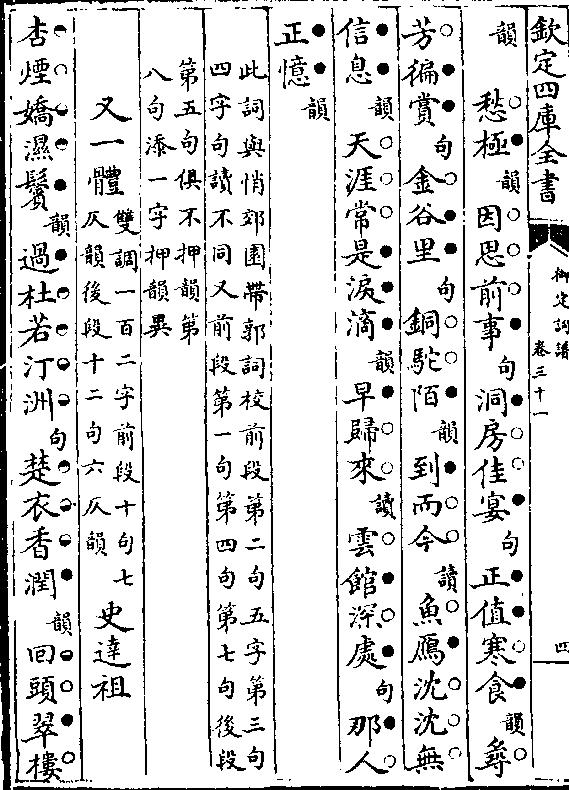 欽定四庫全書
御定詞譜
卷三十一
四
韻
愁極韻因思前事句洞房佳宴句正值寒食韻尋
芳徧賞句金谷里句銅駝陌韻到而今讀魚鴈沈沈無
信息韻天涯常是淚滴韻早歸來讀雲館深處句那人
正憶韻
此詞與悄郊園帶郭詞校前段第二句五字第三句
四字句讀不同又前段第一句第四句第七句後段
第五句俱不押韻第
八句添一字押韻異
又一體雙調一百二字前段十句七
仄韻後段十二句六仄韻史達祖
杏煙嬌濕鬢韻過杜若汀洲句楚衣香潤韻回頭翠樓